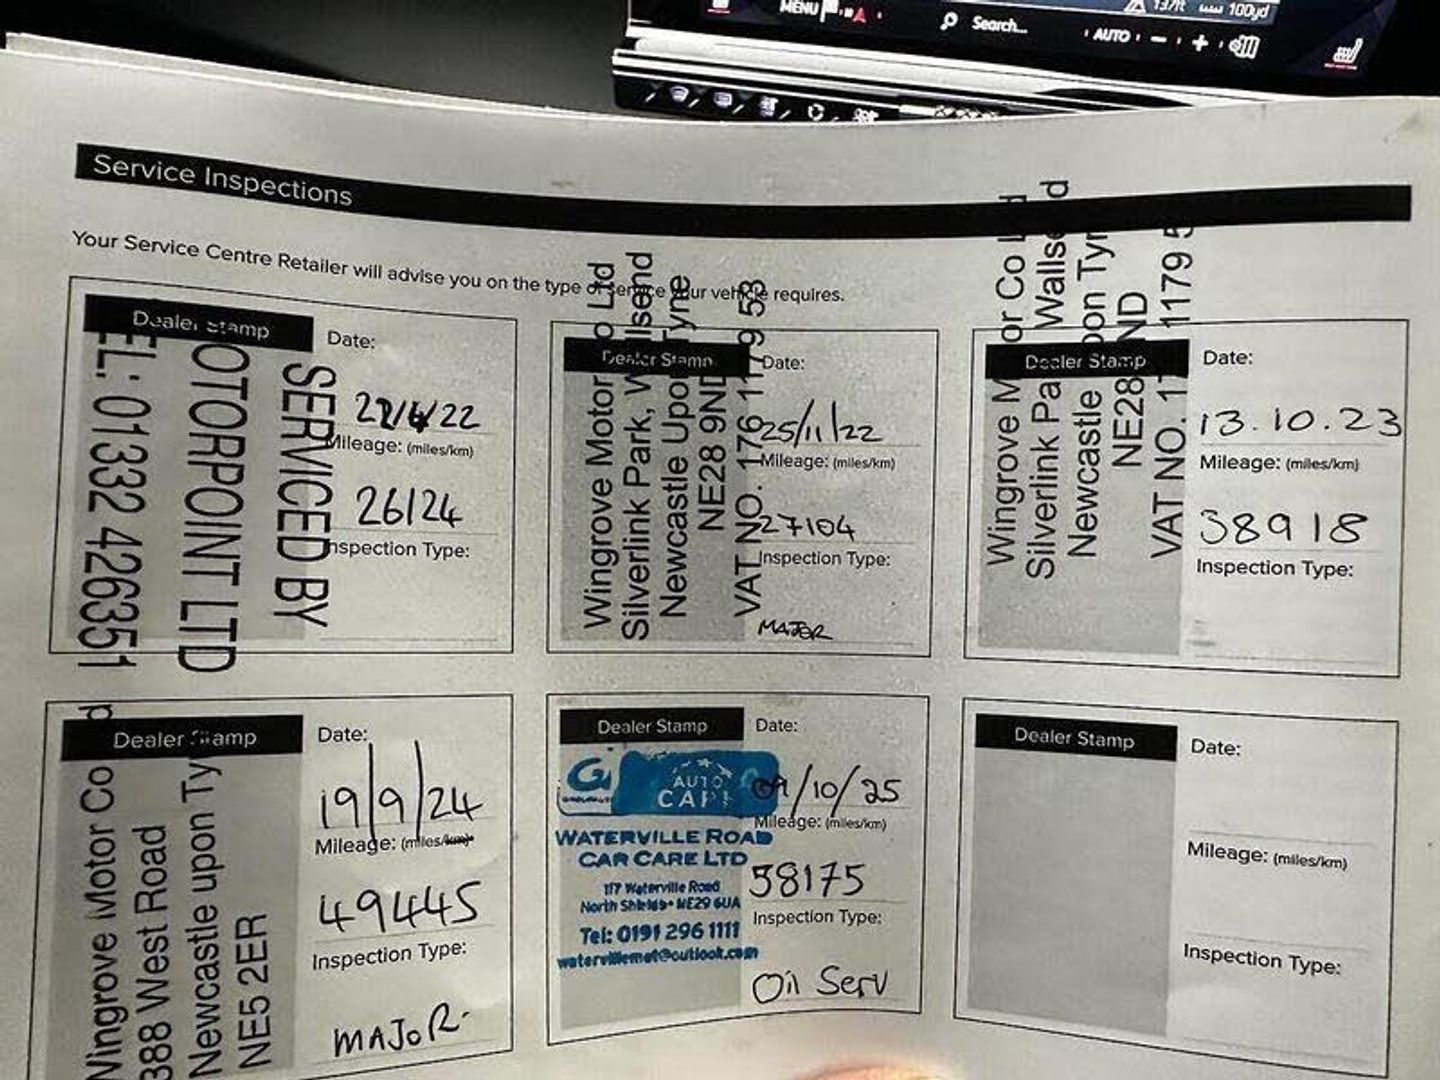 MENU
Search...
AUTO
137ft
100yd
Service Inspections
Your Service Centre Retailer will advise you on the type of service your vehicle requires.
Dealer Stamp
SERVICED BY
OTORPOINT LTD
EL: 01332 426351
Date:
/22
Mileage: (miles/km)
26124
Inspection Type:
Dealer Stamp
Wingrove Motor Co Ltd
Silverlink Park, Wallsend
Newcastle Upon Tyne
NE28 9ND
VAT NO. 176 1179 53
Date:
25/11/22
Mileage: (miles/km)
27104
Inspection Type:
MAJOR
Dealer Stamp
Wingrove Motor Co Ltd
Silverlink Park, Wallsend
Newcastle Upon Tyne
NE28 9ND
VAT NO. 176 1179 5
Date:
13.10.23
Mileage: (miles/km)
38918
Inspection Type:
Dealer Stamp
Wingrove Motor Co Ltd
388 West Road
Newcastle upon Ty
NE5 2ER
Date:
19/9/24
Mileage: (miles/km)
49445
Inspection Type:
MAJOR.
Dealer Stamp
AUTO
CARE
WATERVILLE ROAD
CAR CARE LTD
117 Waterville Road
North Shields • NE29 6UA
Tel: 0191 296 1111
watervillemot@outlook.com
Date:
09/10/25
Mileage: (miles/km)
58175
Inspection Type:
Oil Serv
Dealer Stamp
Date:
Mileage: (miles/km)
Inspection Type: